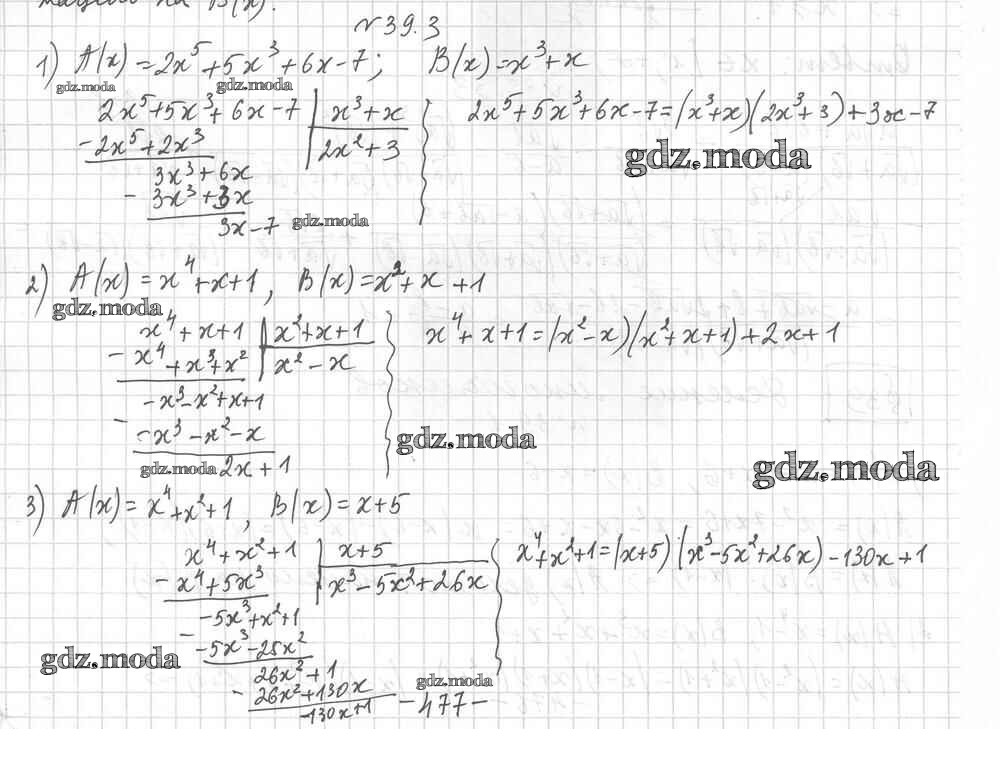 на B(x).
№39.3
1) A(x)=2x⁵+5x³+6x-7; B(x)=x³+x
gdz.moda gdz.moda
2x⁵+5x³+6x-7 | x³+x
-2x⁵+2x³ 2x²+3
3x³+6x
- 3x³+3x
3x-7
2x⁵+5x³+6x-7=(x³+x)(2x³+3)+3x-7
gdz.moda
gdz.moda
2) A(x)=x⁴+x+1, B(x)=x²+x+1
gdz.moda
x⁴+x+1 | x²+x+1
- x⁴+x³+x² x²-x
-x³-x²+x+1
- -x³-x²-x
2x+1
x⁴+x+1=(x²-x)(x²+x+1)+2x+1
gdz.moda
gdz.moda
gdz.moda
3) A(x)=x⁴+x²+1, B(x)=x+5
x⁴+x²+1 | x+5
- x⁴+5x³ x³-5x²+26x
-5x³+x²+1
- -5x³-25x²
26x²+1
- 26x²+130x
-130x+1
x⁴+x²+1=(x+5)(x³-5x²+26x)-130x+1
gdz.moda
gdz.moda
-477-